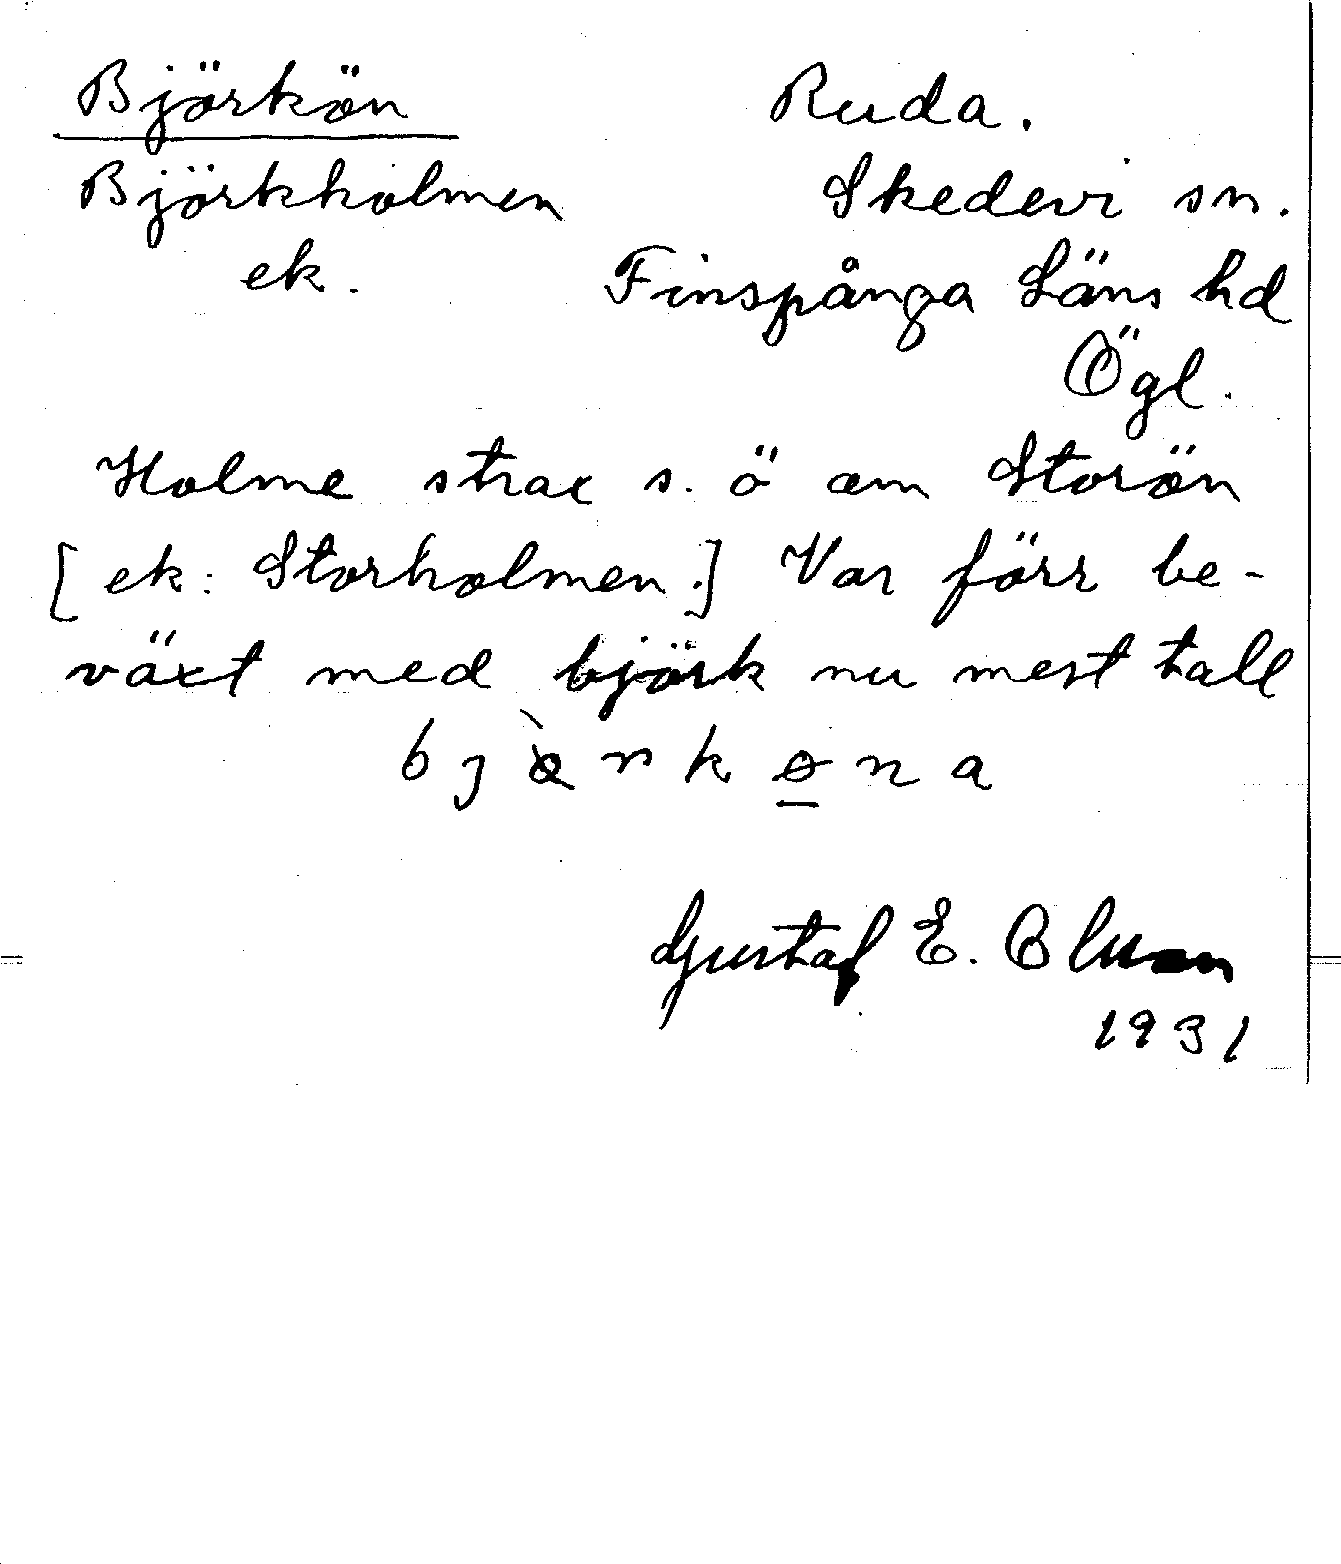 Björkön Ruda.
Björkholmen Skedevi sn.
ek. Finspånga Läns hd
Ögl.
Holme strax s. ö om Storön
[ek: Storholmen.] Var förr be-
växt med björk nu mest tall
Gustaf E.
1931